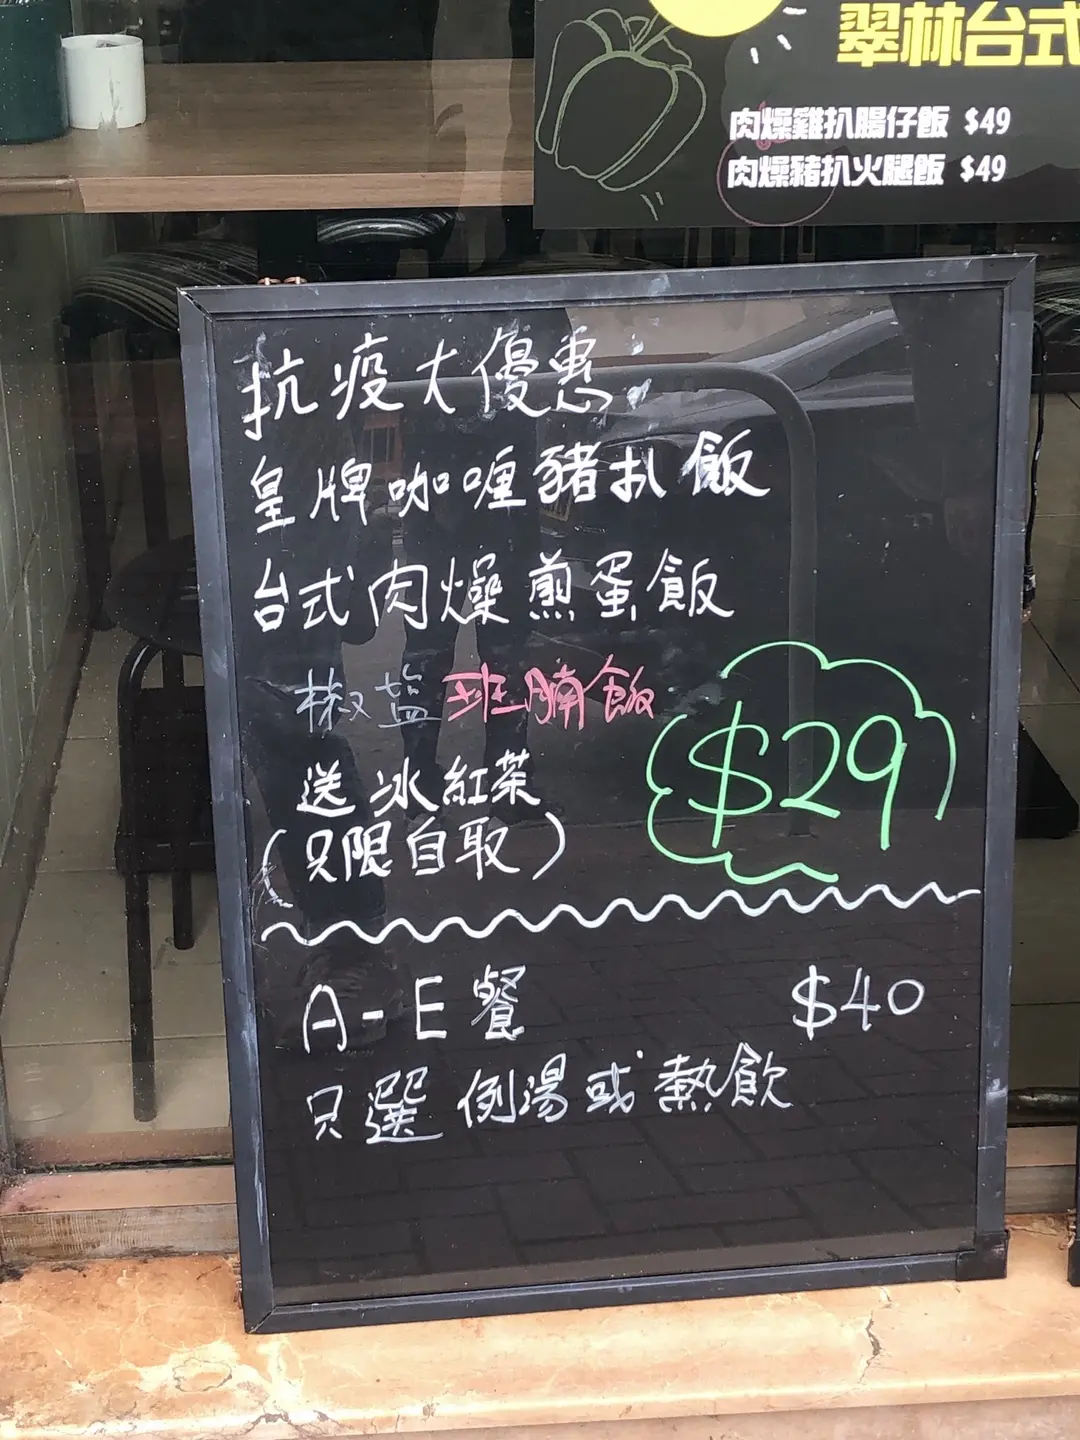 翠林台式
肉燥雞扒腸仔飯 $49
肉燥豬扒火腿飯 $49
抗疫大優惠
皇牌咖喱豬扒飯
台式肉燥煎蛋飯
椒盐班腩飯
$29
送冰紅茶
(只限自取)
A-E餐 $40
只選例湯或熱飲